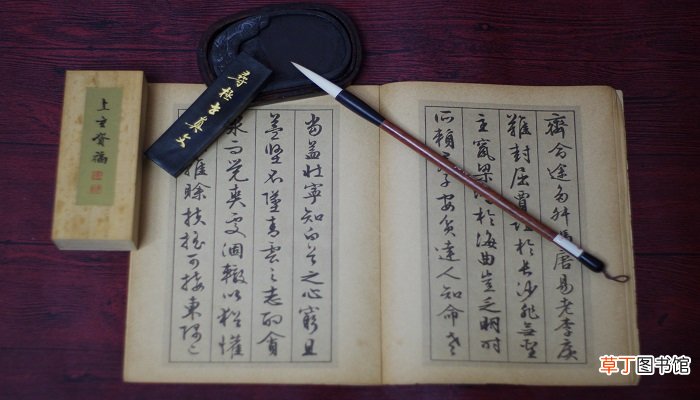 上玄資福
齊命途多舛馮唐易老李廣
難封屈賈誼於長沙非無聖
主竄梁於海曲豈乏明時
所賴子安貧達人知命老
當益壯寧知白首之心窮且
益堅不墜青雲之志酌貪
泉而覺爽處涸轍以猶懽
雖賒扶搖可接東隅已
草丁图书馆